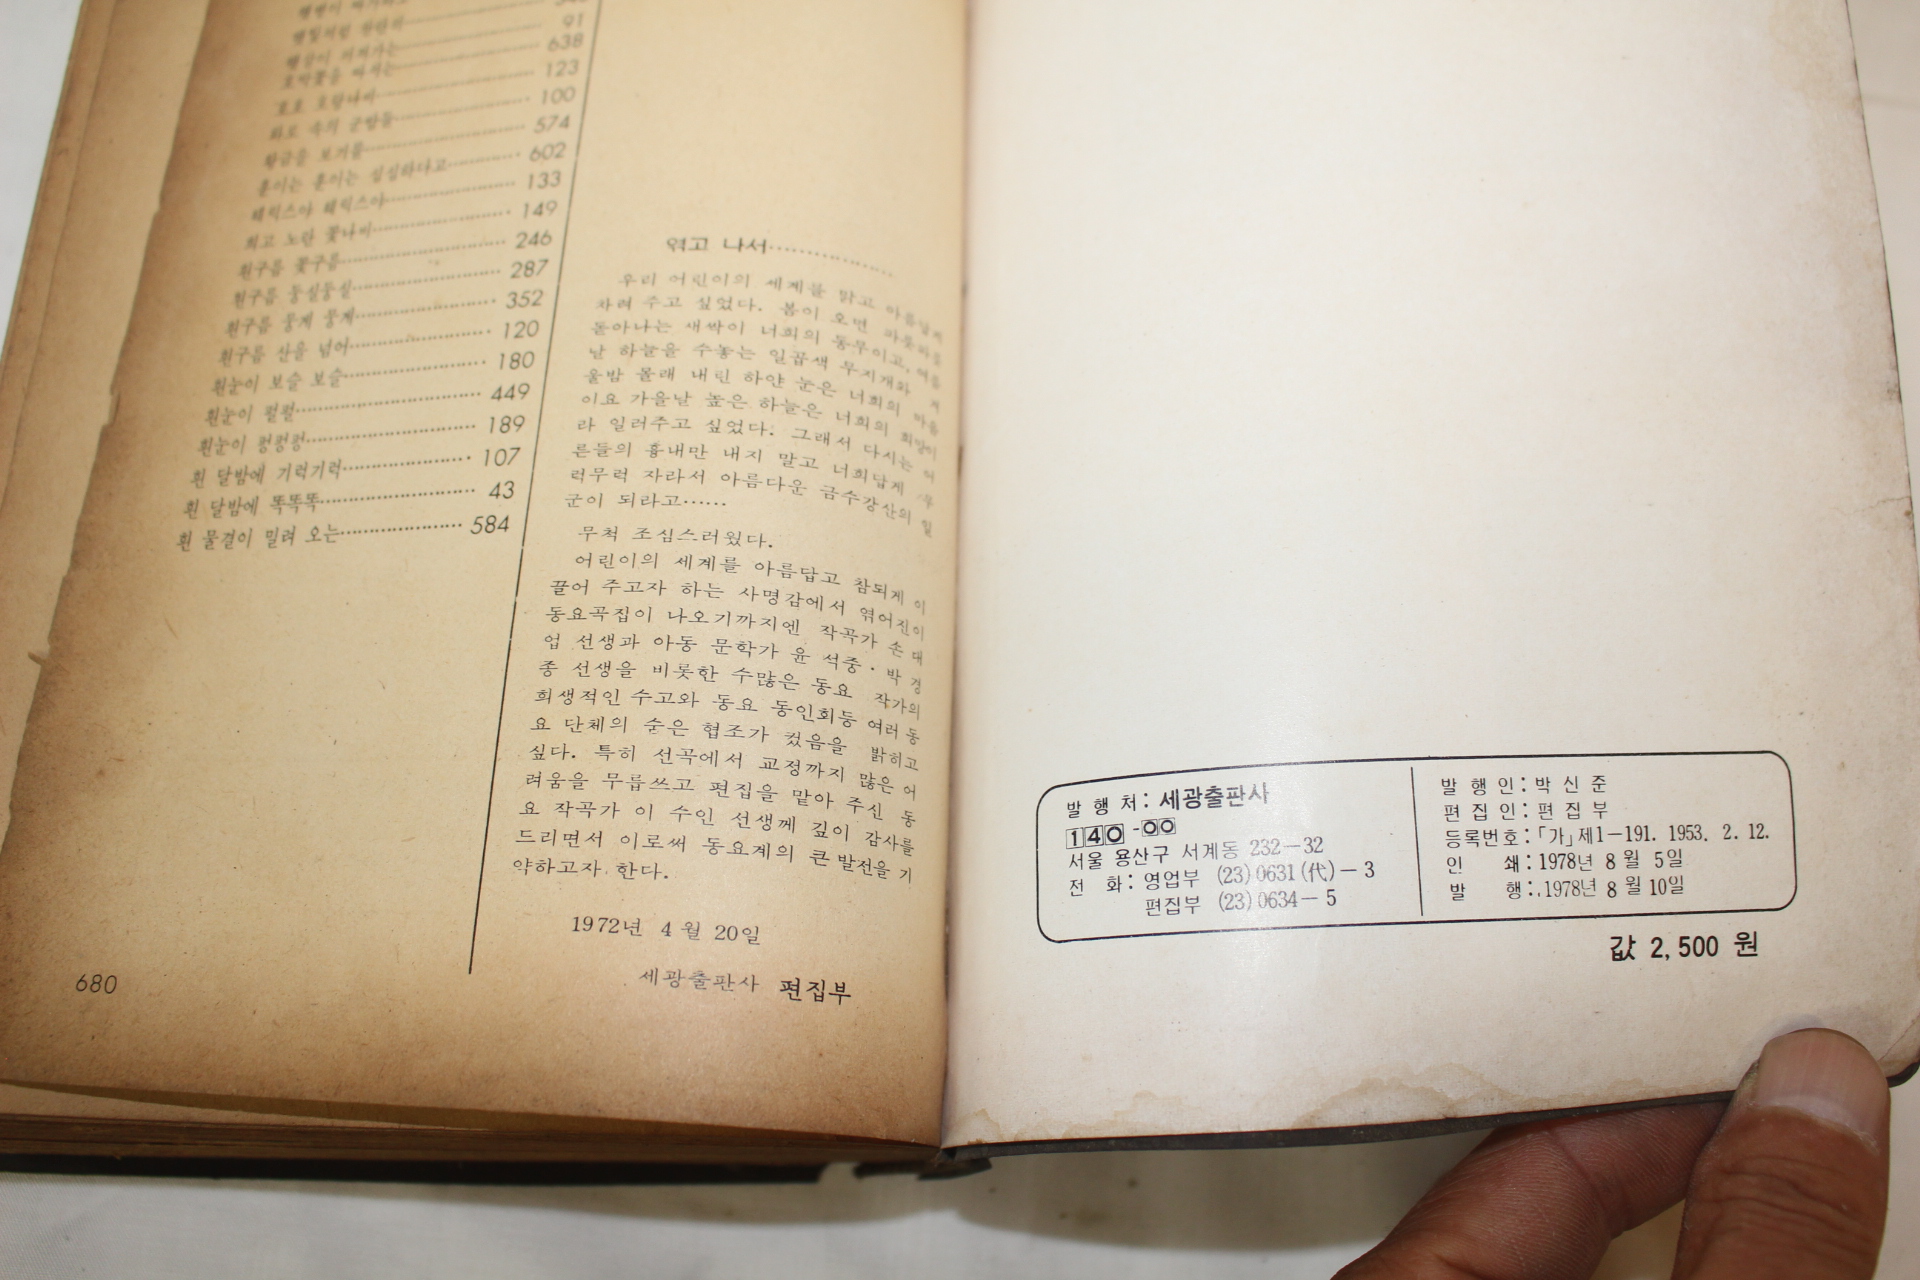 638
123
100
574
602
133
149
246
287
352
120
180
449
189
107
43
화로 속의 군밤들
황금을 보기를
훈이는 훈이는 심심하다고
희고 노란 꽃나비
흰구름 꽃구름
흰구름 둥실둥실
흰구름 뭉게 뭉게
흰구름 산을 넘어
흰눈이 보슬 보슬
흰눈이 펄펄
흰눈이 펑펑펑
흰 달밤에 기럭기럭
흰 달밤에 똑똑똑
흰 물결이 밀려 오는 584
680
엮고 나서
우리 어린이의 세계를 맑고 아름답게
차려 주고 싶었다. 봄이 오면 파릇파릇
돋아나는 새싹이 너희의 동무이고, 여름
날 하늘을 수놓는 일곱색 무지개와 겨
울밤 몰래 내린 하얀 눈은 너희의 마음
이요 가을날 높은 하늘은 너희의 희망이
라 일러주고 싶었다. 그래서 다시는 어
른들의 흉내만 내지 말고 너희답게 무
럭무럭 자라서 아름다운 금수강산의 일
군이 되라고……
무척 조심스러웠다.
어린이의 세계를 아름답고 참되게 이
끌어 주고자 하는 사명감에서 엮어진이
동요곡집이 나오기까지엔 작곡가 손 대
업 선생과 아동 문학가 윤 석중·박 경
종 선생을 비롯한 수많은 동요 작가의
희생적인 수고와 동요 동인회등 여러 동
요 단체의 숟은 협조가 컸음을 밝히고
싶다. 특히 선곡에서 교정까지 많은 어
려움을 무릅쓰고 편집을 맡아 주신 동
요 작곡가 이 수인 선생께 깊이 감사를
드리면서 이로써 동요계의 큰 발전을 기
약하고자 한다.
1972년 4월 20일
세광출판사 편집부
발 행 처: 세광출판사
140-00
서울 용산구 서계동 232-32
전 화: 영업부 (23)0631(代)-3
편집부 (23)0634-5
발 행 인: 박 신 준
편 집 인: 편 집 부
등록번호:「가」제1-191. 1953. 2. 12.
인 쇄: 1978년 8월 5일
발 행: 1978년 8월 10일
값 2,500 원